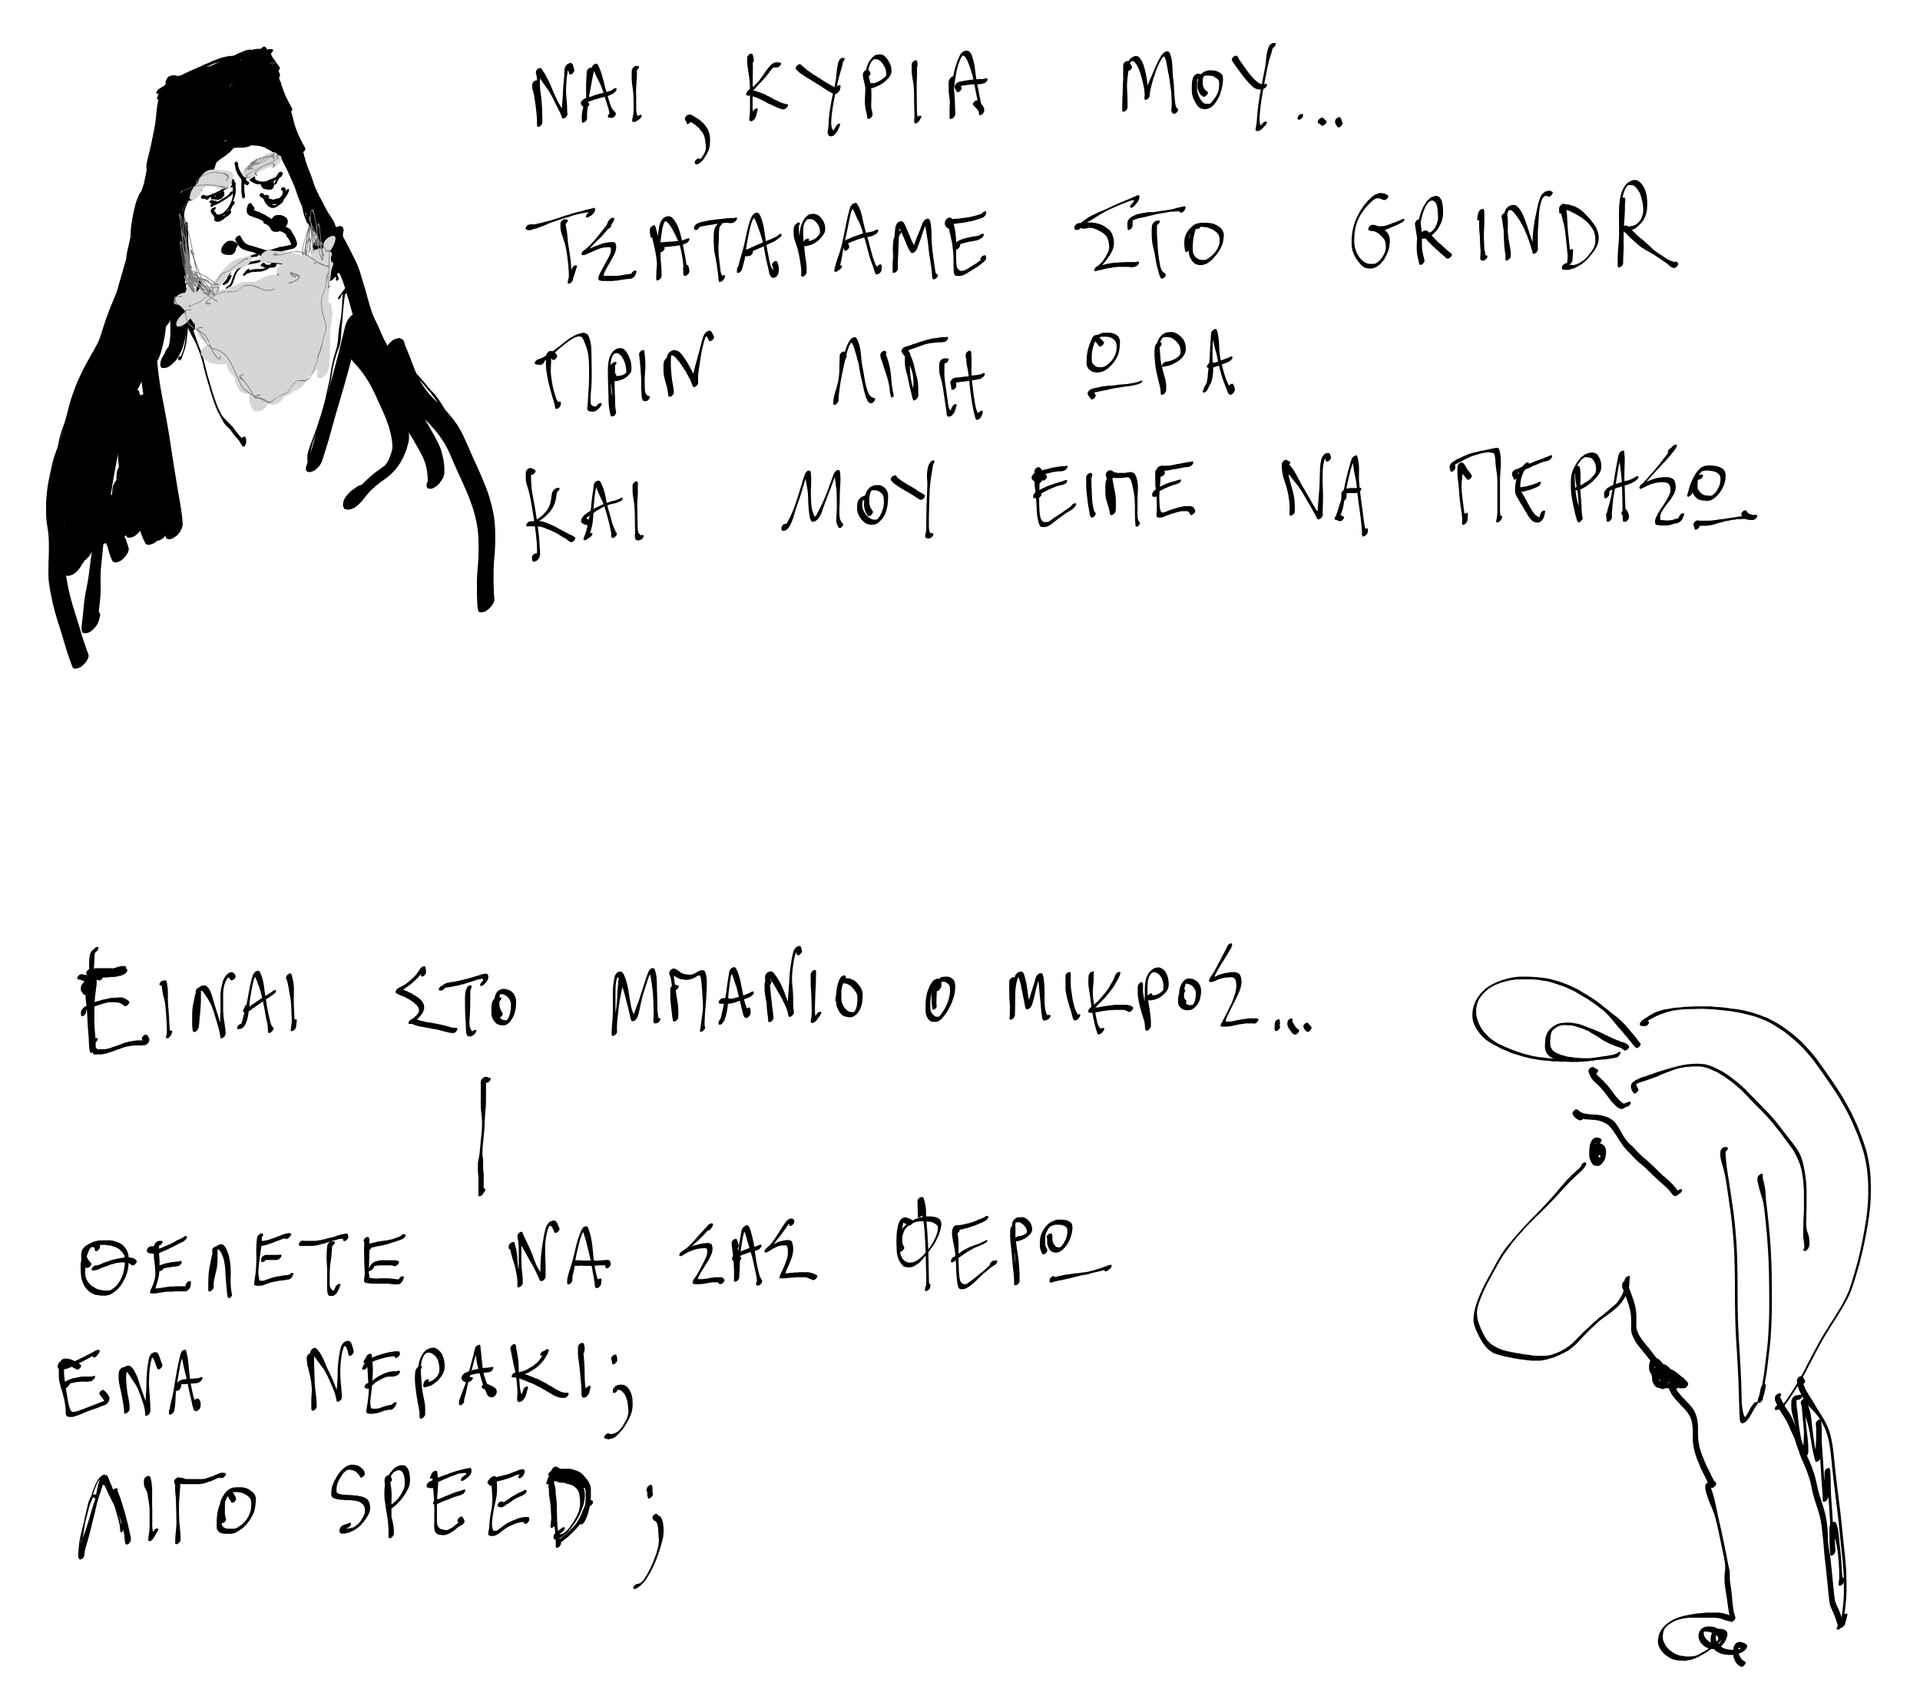 ΝΑΙ, ΚΥΡΙΑ ΜΟΥ...
ΤΣΑΤΑΡΑΜΕ ΣΤΟ GRINDR
ΠΡΙΝ ΛΙΓΗ ΩΡΑ
ΚΑΙ ΜΟΥ ΕΙΠΕ ΝΑ ΠΕΡΑΣΩ
ΕΙΝΑΙ ΣΤΟ ΜΠΑΝΙΟ Ο ΜΙΚΡΟΣ...
ΘΕΛΕΤΕ ΝΑ ΣΑΣ ΦΕΡΩ
ΕΝΑ ΝΕΡΑΚΙ;
ΛΙΓΟ SPEED;